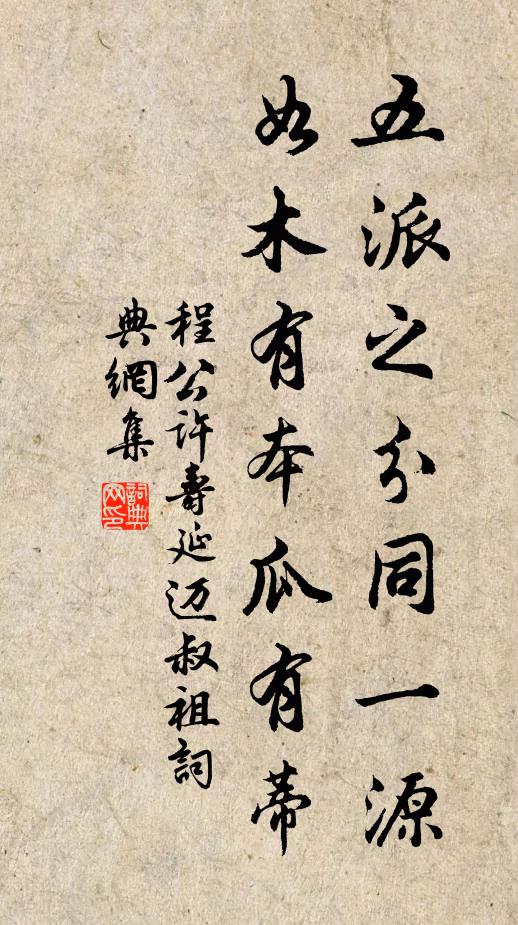 五派之分同一源
如木有本瓜有蒂
程公许寿延迈叔祖詞
典網集
詞典
网印